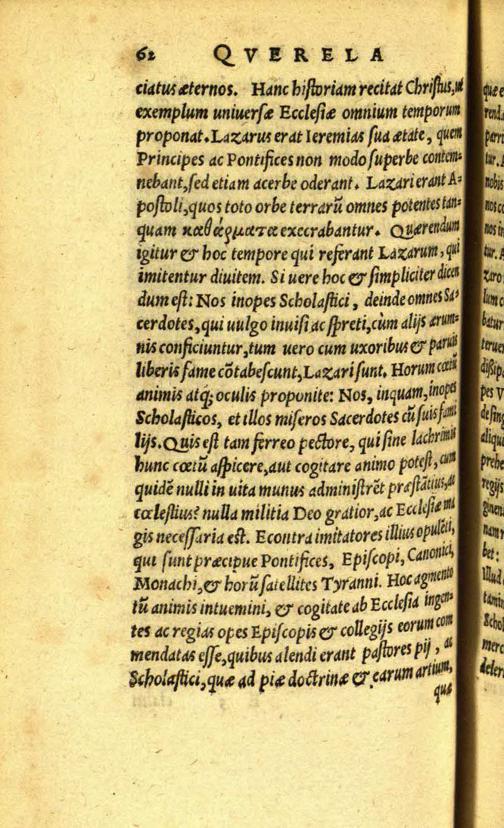 62 QVERELA
ciatus æternos. Hanc historiam recitat Christus, ut
exemplum uniuersæ Ecclesiæ omnium temporum
proponat. Lazarus erat Ieremias sua ætate, quem
Principes ac Pontifices non modo superbe contem=
nebant, sed etiam acerbe oderant. Lazari erant A=
postoli, quos toto orbe terrarũ omnes potentes tan=
quam καθάρματα execrabantur. Quærendum
igitur & hoc tempore qui referant Lazarum, qui
imitentur diuitem. Si uere hoc & simpliciter dicen
dum est: Nos inopes Scholastici, deinde omnes Sa=
cerdotes, qui uulgo inuisi ac spreti, cùm alijs ærum=
nis conficiuntur, tum uero cum uxoribus & paruis
liberis fame cõtabescunt, Lazari sunt. Horum cœtũ
animis atq; oculis proponite: Nos, inquam, inopes
Scholasticos, et illos miseros Sacerdotes cũ suis fami
lijs. Quis est tam ferreo pectore, qui sine lachrimis
hunc cœtũ aspicere, aut cogitare animo potest, cum
quidẽ nulli in uita munus administrẽt præstãtius, ac
cœlestius? nulla militia Deo gratior, ac Ecclesiæ ma
gis necessaria est. Econtra imitatores illius opulẽti,
qui sunt præcipue Pontifices, Episcopi, Canonici,
Monachi, & horũ satellites Tyranni. Hoc agmen to
tũ animis intuemini, & cogitate ab Ecclesia ingen=
tes ac regias opes Episcopis & collegijs eorum com
mendatas esse, quibus alendi erant pastores pij, ac
Scholastici, quæ ad piæ doctrinæ & earum artium,
quæ